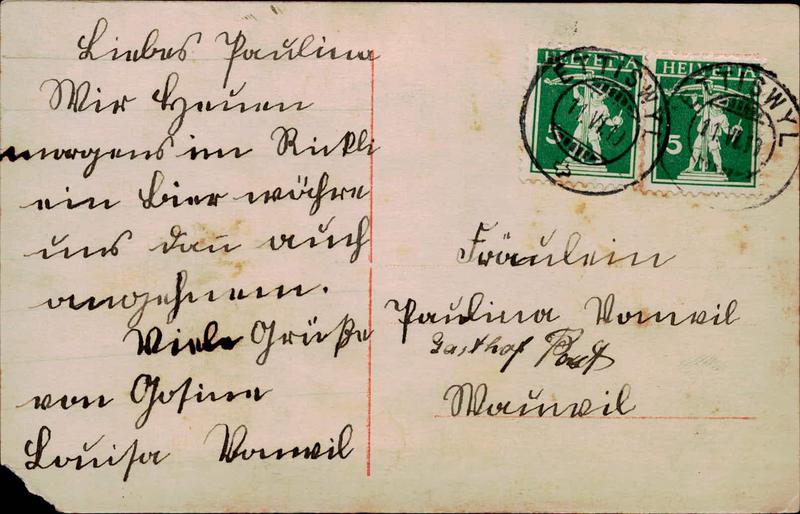 Liebes Paulina
Wir Heuen
morgens im Rickli
ein Bier währe
uns dan̄ auch
angehnem.
Viele Grüße
von Gosine
Louisa Vonwil
HELVETIA
5
HELVETIA
5
ETTISWYL
ETTISWYL
Fräulein
Paulina Vonwil
Gasthof Post
Wauwil